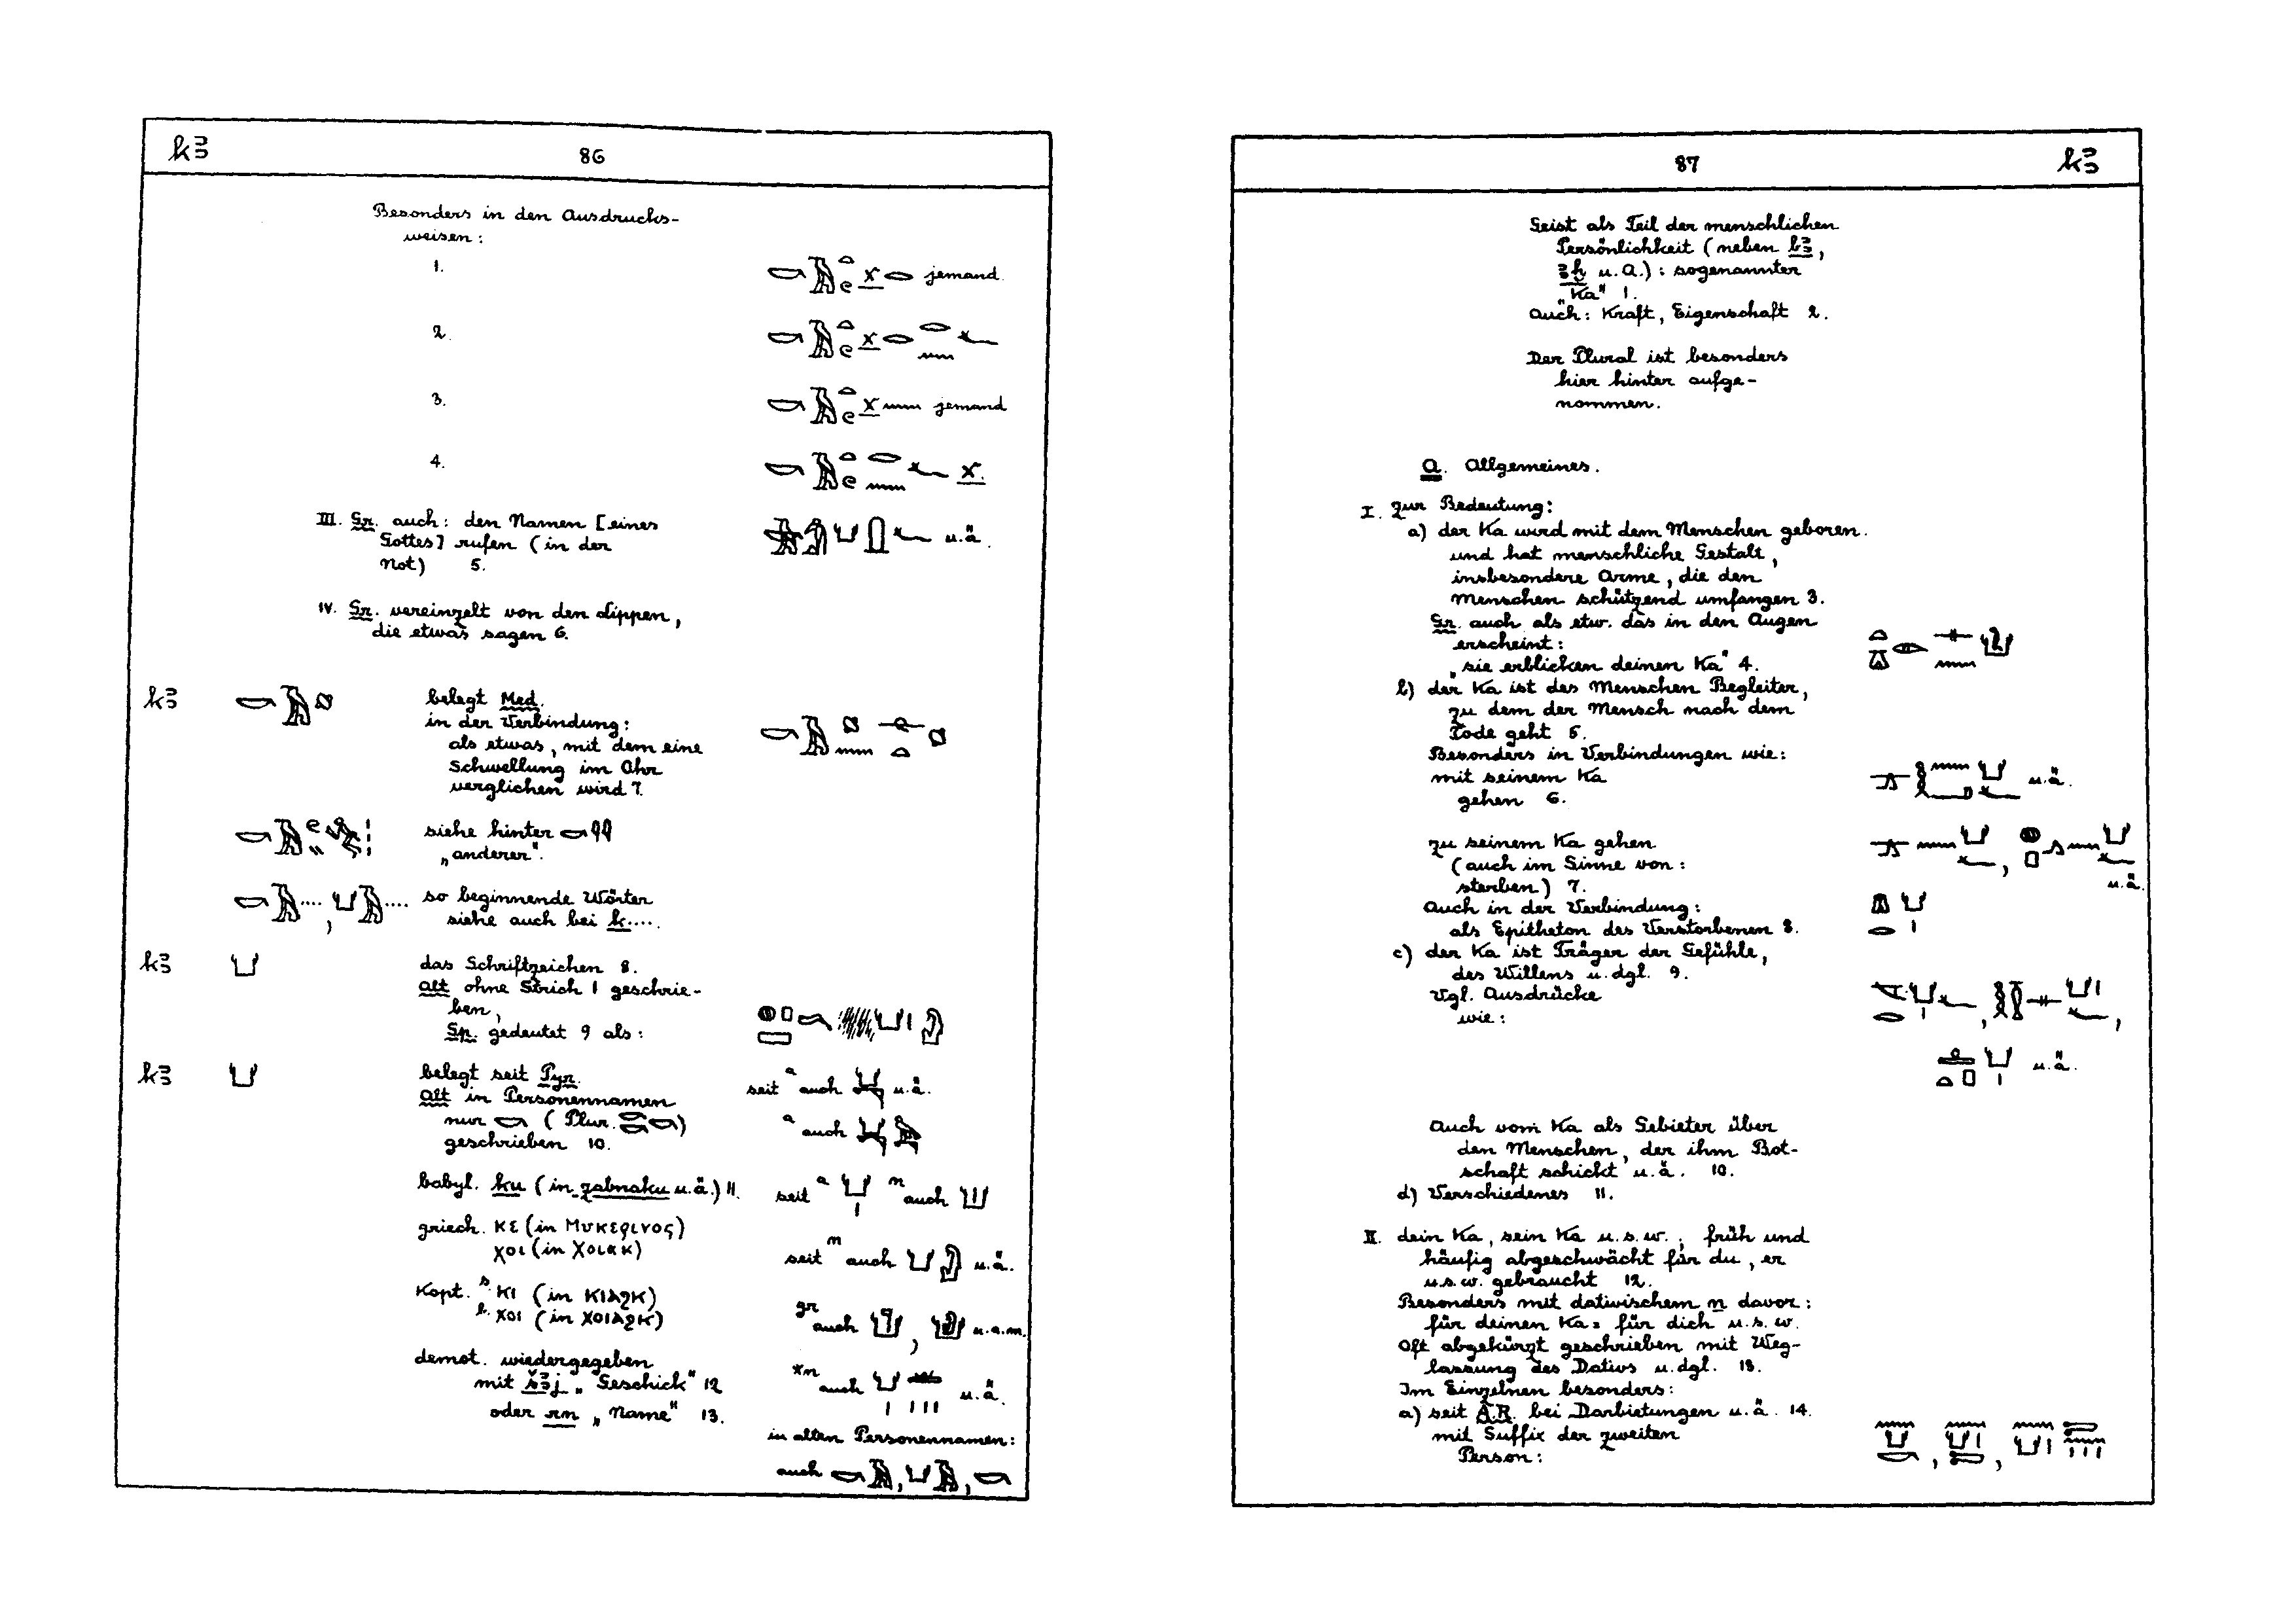 k3
86
Besonders in den Ausdrucks-
weisen:
1.
x jemand.
2.
x
3.
x jemand
4.
x.
III. Gr. auch: den Namen [eines
Gottes] rufen (in der
Not) 5.
u.ä.
IV. Gr. vereinzelt von den Lippen,
die etwas sagen 6.
k3
belegt Med.
in der Verbindung:
als etwas, mit dem eine
Schwellung im Ohr
verglichen wird 7.
siehe hinter
„anderer“.
...., ....
so beginnende Wörter
siehe auch bei k....
k3
das Schriftzeichen 8.
Alt ohne Strich I geschrie-
ben,
Sp. gedeutet 9 als:
k3
belegt seit Pyr.
Alt in Personennamen
nur (Plur. )
geschrieben 10.
seit a auch u.ä.
a auch
babyl. ku (in zabnaku u.ä.) 11.
seit a n auch
griech. κε (in Μυκερινος)
χοι (in χοιακ)
seit n auch u.ä.
Kopt. s ⲕⲓ (in ⲕⲓⲁϩⲕ)
b. ⲭⲟⲓ (in ⲭⲟⲓⲁϩⲕ)
gr auch , u.a.m.
demot. wiedergegeben
mit š3j „Geschick“ 12
oder rn „Name“ 13.
*n auch u.ä.
in alten Personennamen:
auch , ,
87
k3
Geist als Teil der menschlichen
Persönlichkeit (neben b3,
3ḫ u.a.): sogenannter
„Ka“ 1.
Auch: Kraft, Eigenschaft 2.
Der Plural ist besonders
hier hinter aufge-
nommen.
A. Allgemeines.
I. Zur Bedeutung:
a) der Ka wird mit dem Menschen geboren.
und hat menschliche Gestalt,
insbesondere Arme, die den
Menschen schützend umfangen 3.
Gr. auch als etw. das in den Augen
erscheint:
„sie erblicken deinen Ka“ 4.
b) der Ka ist des Menschen Begleiter,
zu dem der Mensch nach dem
Tode geht 5.
Besonders in Verbindungen wie:
mit seinem Ka
gehen 6.
u.ä.
zu seinem Ka gehen
(auch im Sinne von:
sterben) 7.
u.ä.
Auch in der Verbindung:
als Epitheton des Verstorbenen 8.
c) der Ka ist Träger der Gefühle,
des Willens u.dgl. 9.
Vgl. Ausdrücke
wie:
u.ä.
Auch vom Ka als Gebieter über
den Menschen, der ihm Bot-
schaft schickt u.ä. 10.
d) Verschiedenes 11.
II. dein Ka, sein Ka u.s.w.; früh und
häufig abgeschwächt für du, er
u.s.w. gebraucht 12.
Besonders mit dativischem n davor:
für deinen Ka = für dich u.s.w.
Oft abgekürzt geschrieben mit Weg-
lassung des Dativs u.dgl. 13.
Im Einzelnen besonders:
a) seit A.R. bei Darbietungen u.ä. 14.
mit Suffix der zweiten
Person: